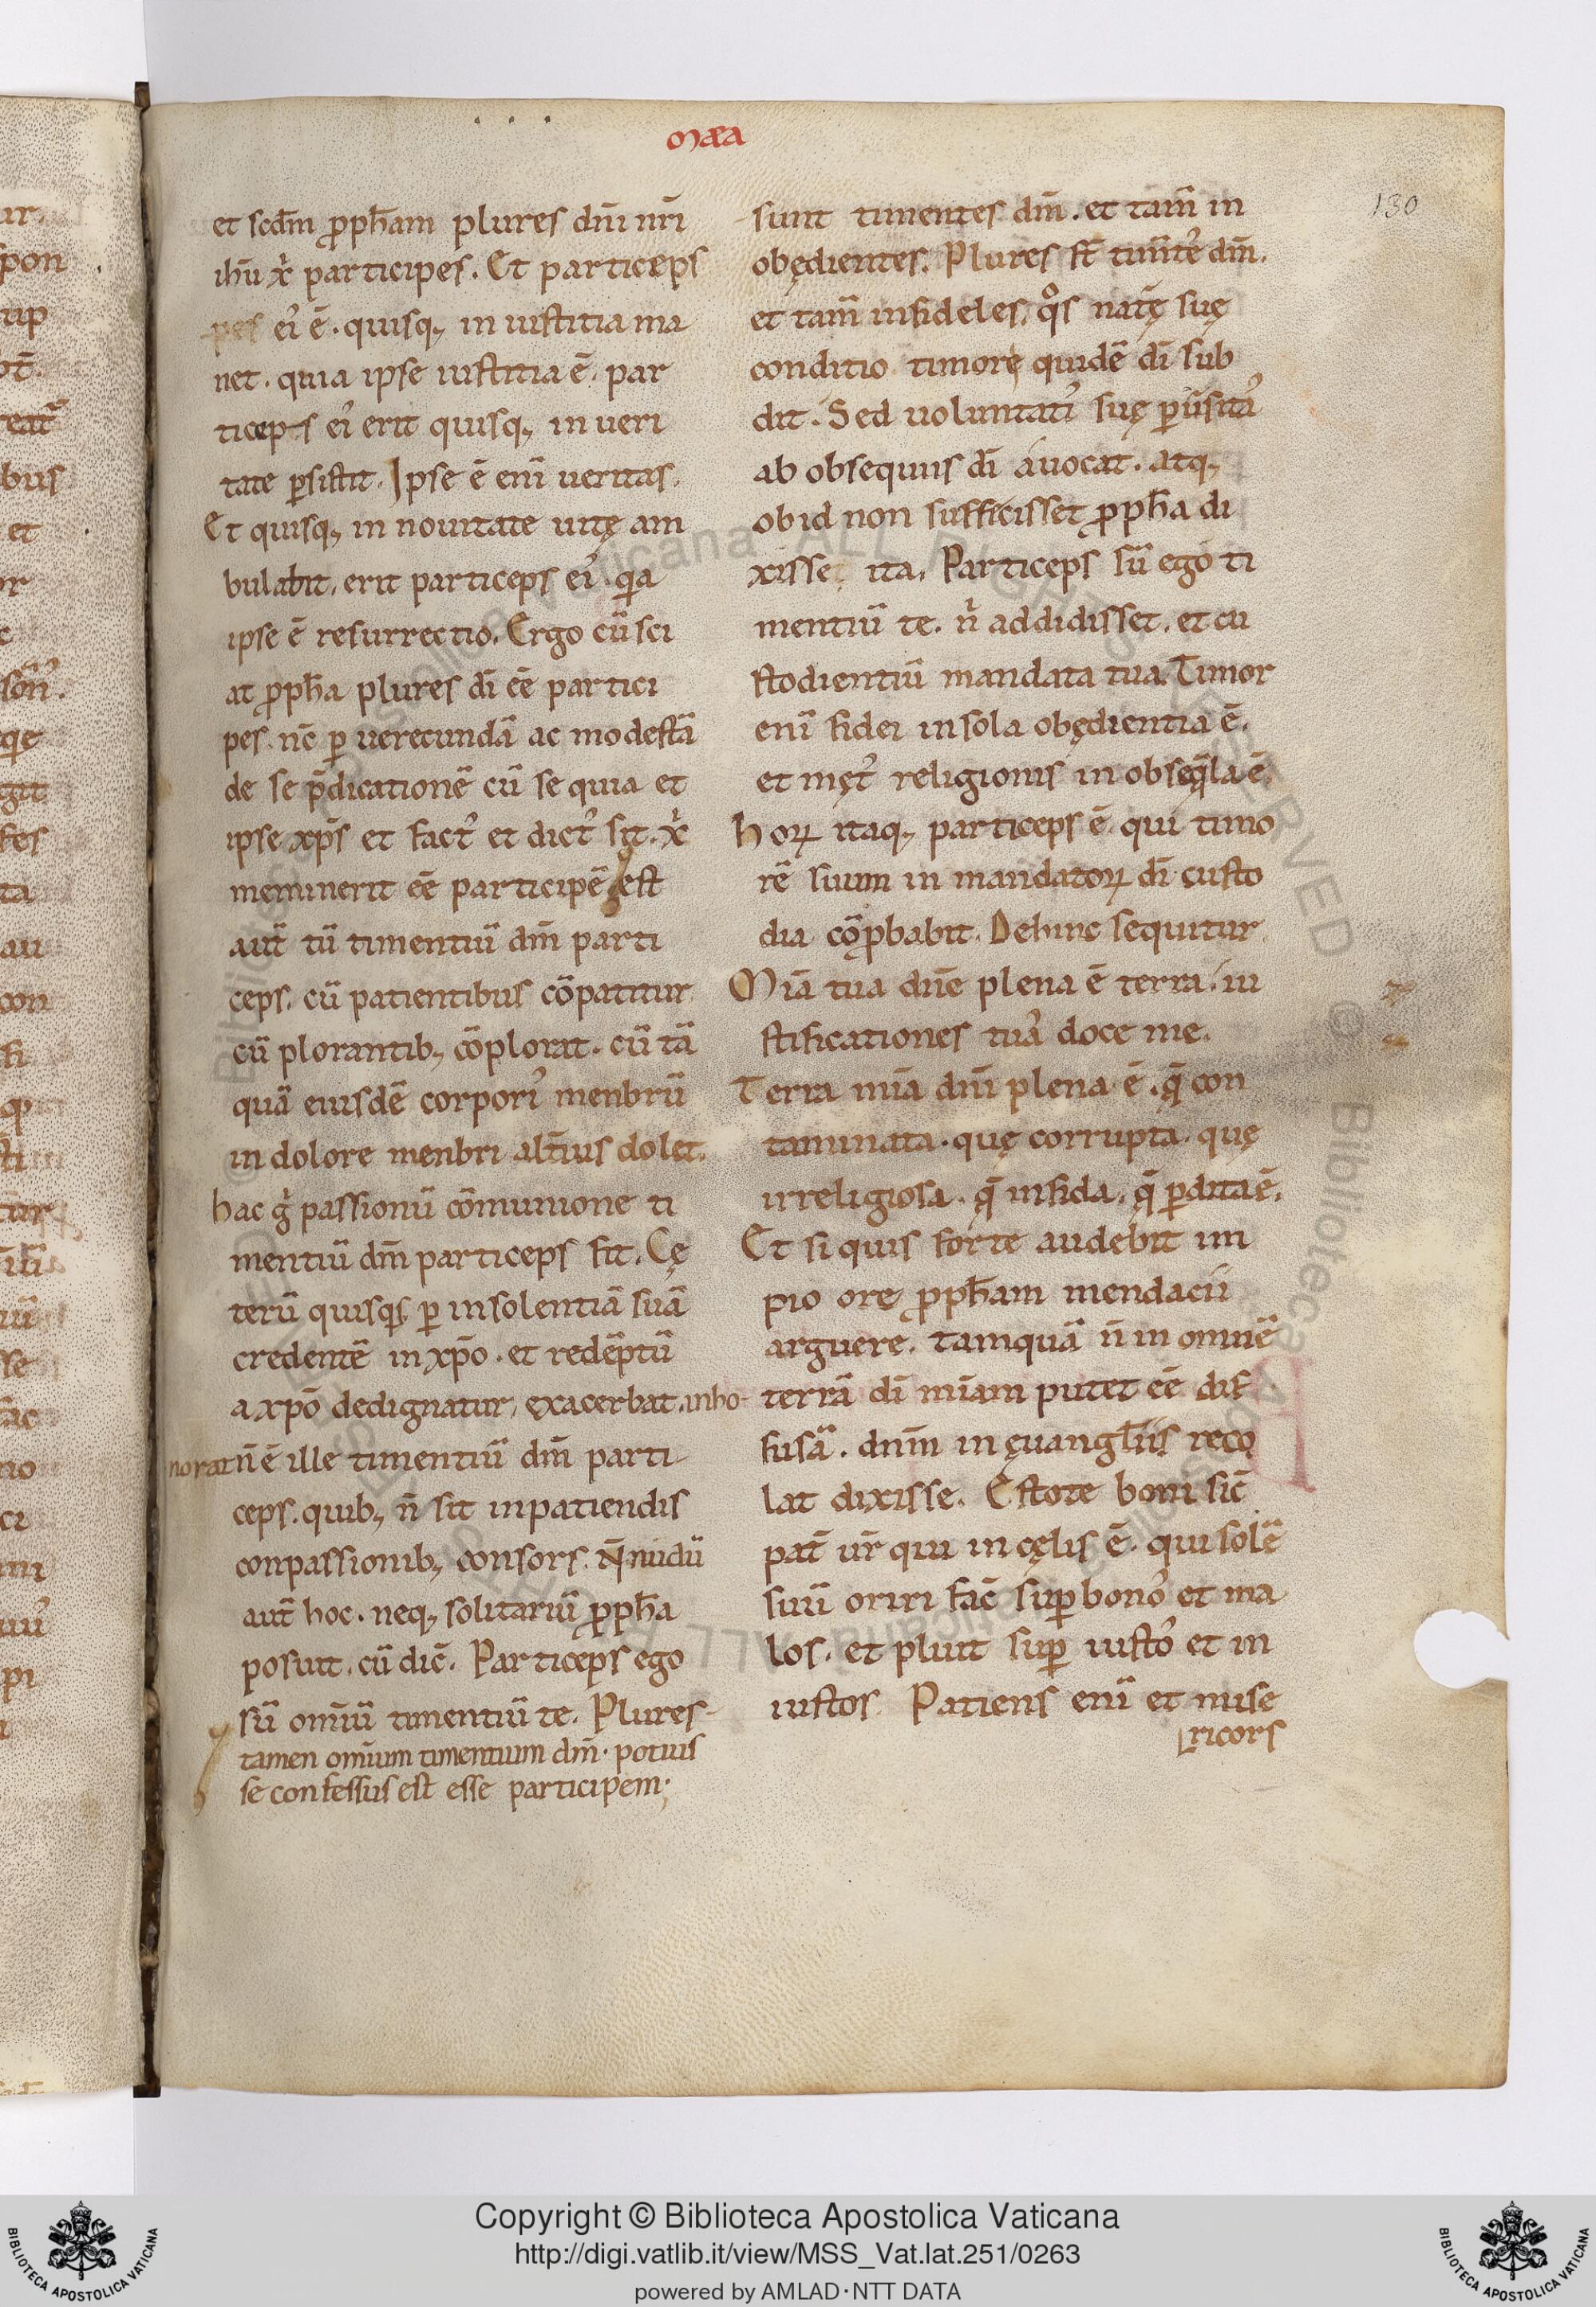 mæa
130
et scd̄m ꝓph̄am plures dn̄i nr̄i
ih̄u x̄ participes. Et particeps
pes ei᾽ ē. quisq; in iustitia ma
net. quia ipse iustitia ē. par
ticeps ei᾽ erit quisq; in ueri
tate ꝑsistit. Ipse ē enī ueritas.
Et quisq; in nouitate uitę am
bulabit, erit particeps ei᾽. qia
ipse ē resurrectio. Ergo cū sci
at ꝓph̄a plures dī eē partici
pes. nc̄ ꝑ uerecundā ac modestā
de se p̄dicationē cū se quia et
ipse xp̄s et fact᾽ et dict᾽ sit. x̄
meminerit eē participē est
aut̄ tū timentiū dm̄ parti
ceps. cū patientibus cōpatitur
cū plorantib; cōplorat. cū tā
quā eiusdē corpori᾽ menbrū
in dolore menbri alt̄ius dolet.
hac g̊ passionū cōmunione ti
mentiū dm̄ particeps fit. Cę
terū quisq;s ꝑ insolentiā suā
credentē in xp̄o. et redēptū
a xp̄o dedignatur, exacerbat. inho-
norat n̄ ē ille timentiū dm̄ parti-
ceps. quib; n̄ sit inpatiendis
conpassionib; consors. N̄ nudū
aut̄ hoc. neq; solitariū ꝓph̄a
posuit. cū dic̄. Particeps ego
sū om̄iū timentiū te. Plures-
tamen om̄ium timentium dm̄. potuis
se confessus est esse participem;
sunt timentes dm̄. et tam̄ in
obędientes. Plures st̄ tim̄te᾽ dm̄.
et tam̄ infideles. qo̊s natę̄ suę
conditio timore quidē dī sub
dit. Sed uoluntati᾽ suę ꝑūsita᾽
ab obsequiis dī auocat. atq;
ob id non sufficisset ꝓph̄a di
xisse ita. Particeps sū ego ti
mentiū te. n̄ addidisset. et cu
stodientiū mandata tua. Timor
enī fidei in sola obędientia ē.
et męt᾽ religionis in obseq̄la ē.
horꝝ itaq; particeps ē. qui timo
rē suum in mandatorꝝ dī custo
dia cōꝓbabit. Dehinc sequitur
Mīa tua dn̄e plena ē terra. iu
stificationes tua᾽ doce me.
Terra mīa dn̄i plena ē. q̄ con
taminata. quę corrupta. quę
irreligiosa. q̄ infida. q̄ ꝑdita ē.
Et si quis forte audebit im
pio ore ꝓph̄am mendacii
arguere. tamquā n̄ in omnē
terrā dī mīam putet eē dif
fusā. dnm̄ in ęuangl̄iis reco
lat dixisse. Estote boni sic̄
pat̄ ur̄ qui in cęlis ē. qui solē
suū oriri fac̄ suꝑ bono᾽ et ma
los. et pluit suꝑ iusto᾽ et in
iustos. Patiens enī et mise
ricors
Copyright © Biblioteca Apostolica Vaticana
http://digi.vatlib.it/view/MSS_Vat.lat.251/0263
powered by AMLAD·NTT DATA
BIBLIOTECA APOSTOLICA VATICANA
BIBLIOTECA APOSTOLICA VATICANA